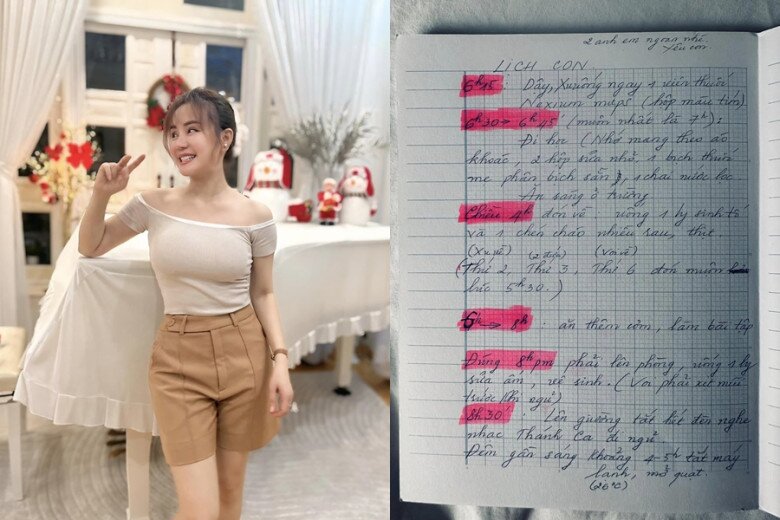 2 anh em ngoan nhé.
Yêu con.
LỊCH CON
6h15 : Dậy, Xu uống ngay 1 viên thuốc
Nexium mups (hộp màu tím)
6h30 → 6h45 (muộn nhất là 7h):
Đi học (Nhớ mang theo áo
khoác, 2 hộp sữa nhỏ, 1 bịch thuốc
mẹ phân bịch sẵn, 1 chai nước lọc.
Ăn sáng ở trường
Chiều 4h đón về : uống 1 ly sinh tố
và 1 chén cháo nhiều rau, thịt.
(Xu về) (2 đứa) (Voi về)
(Thứ 2, Thứ 3, Thứ 6 đón muộn
lúc 5h30.)
6h → 8h : ăn thêm cơm, làm bài tập
Đúng 8h pm phải lên phòng, uống 1 ly
sữa ấm, vệ sinh. (Voi phải xịt mũi
trước khi ngủ)
8h30' : Lên giường tắt hết đèn nghe
nhạc Thánh Ca đi ngủ
Đêm gần sáng khoảng 4-5h tắt máy
lạnh, mở quạt.
(26°C)